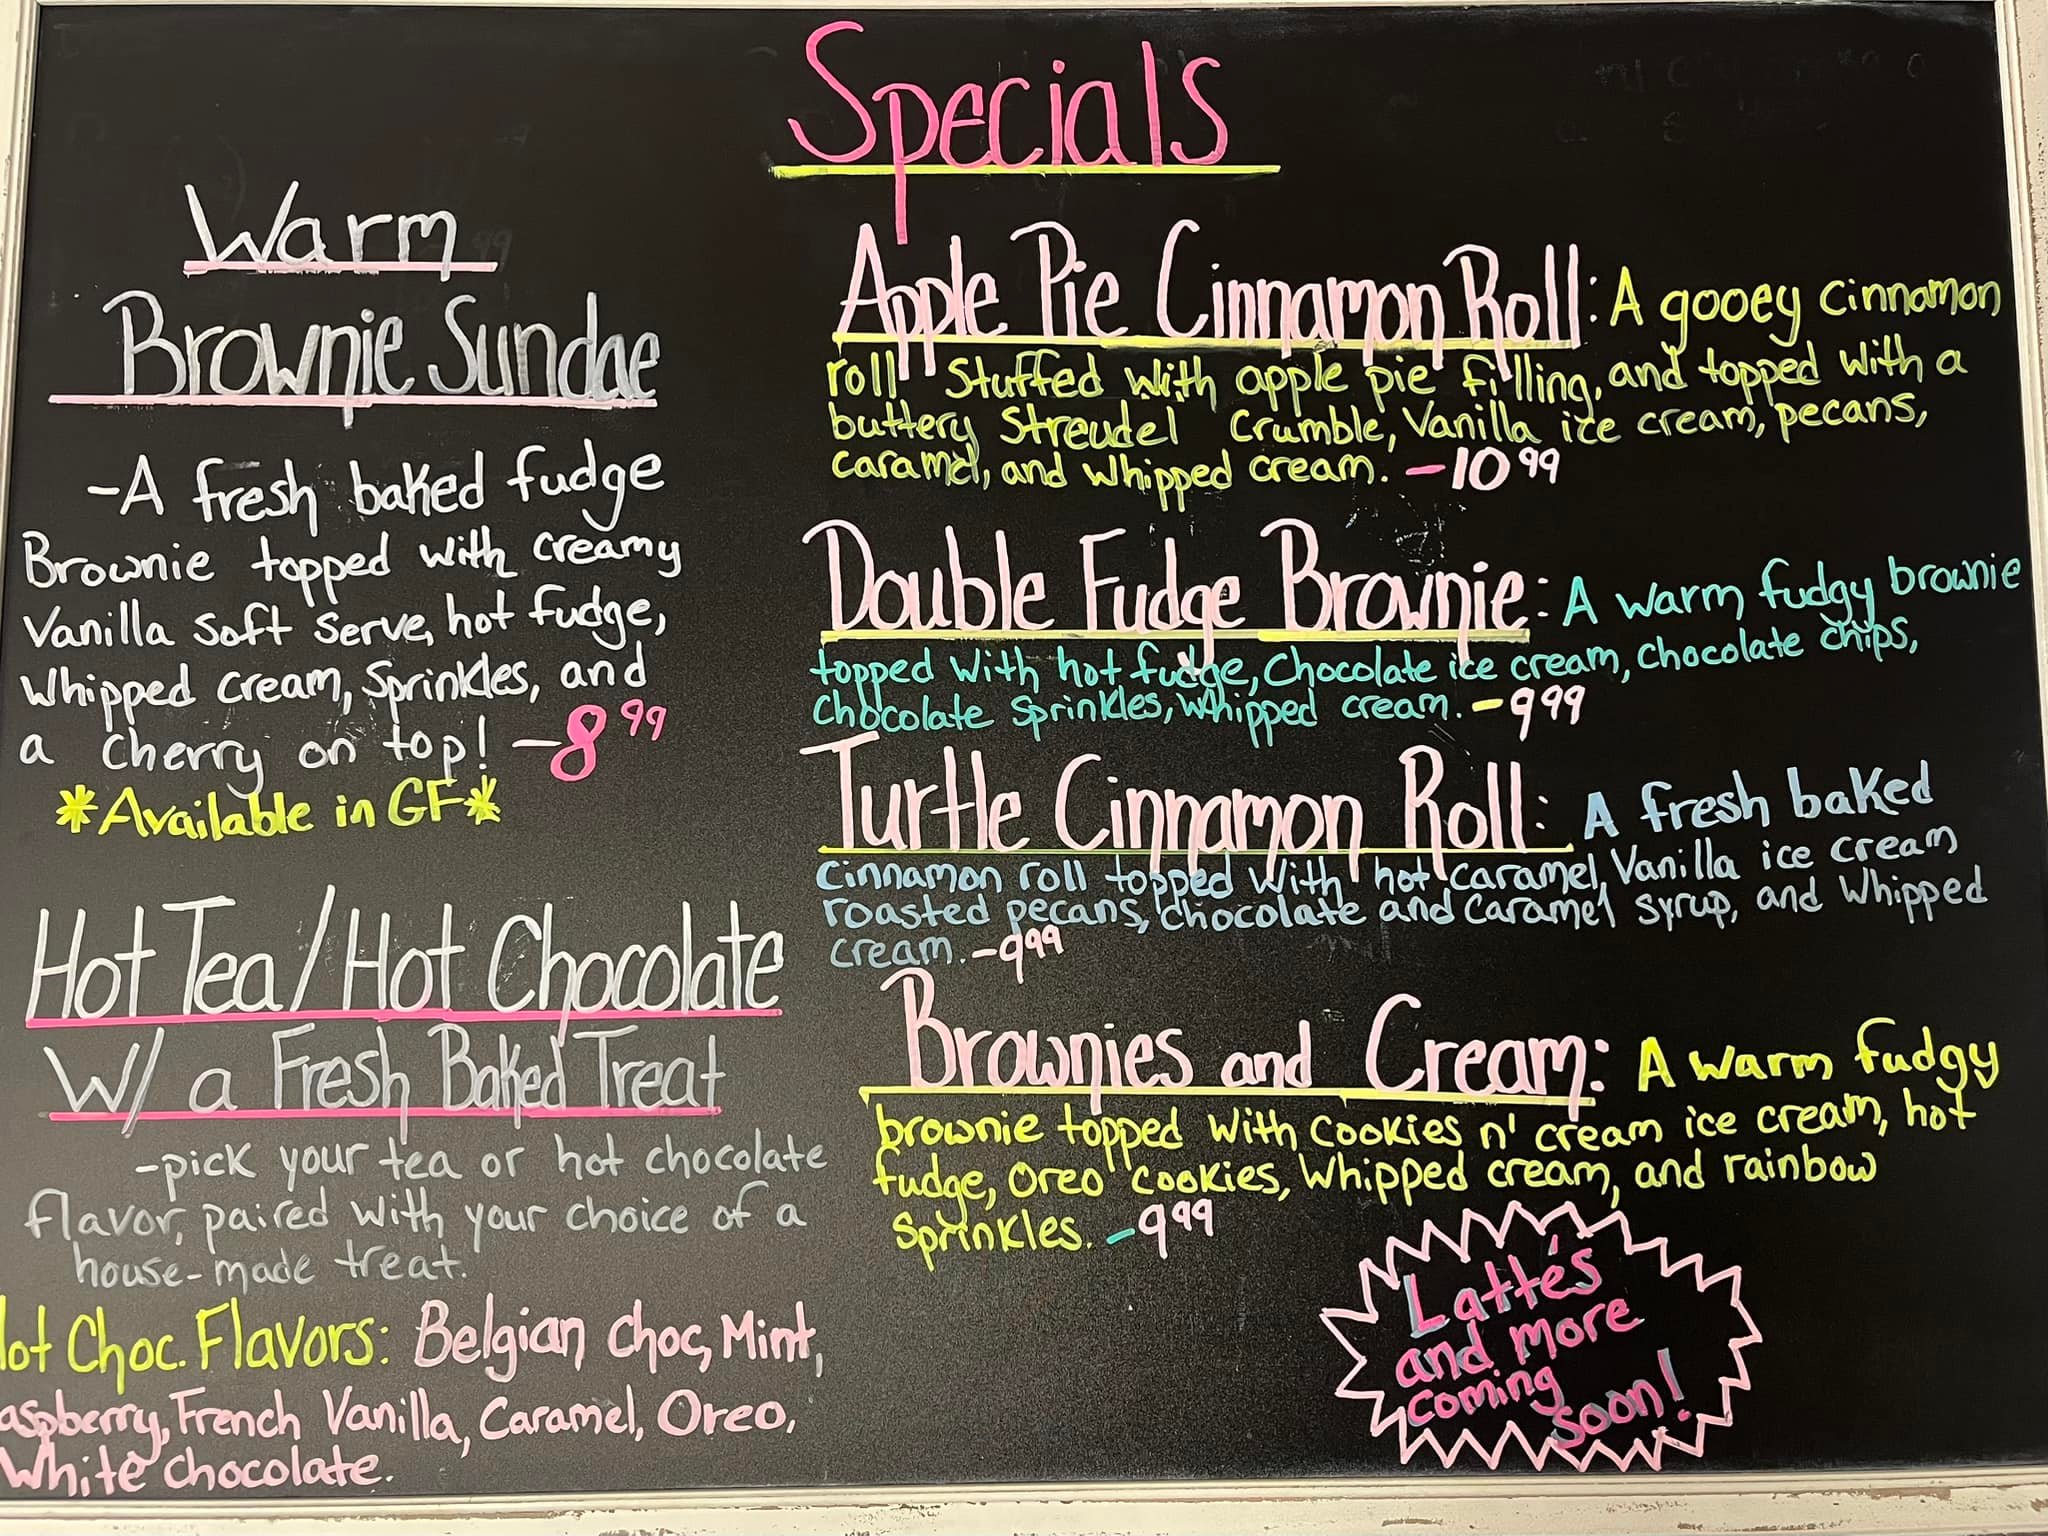 Specials
Warm
Brownie Sundae
-A fresh baked fudge
Brownie topped with creamy
Vanilla soft serve, hot fudge,
Whipped cream, Sprinkles, and
a cherry on top! -8 99
*Available in GF*
Hot Tea/Hot Chocolate
W/ a Fresh Baked Treat
-pick your tea or hot chocolate
flavor, paired with your choice of a
house-made treat.
Hot Choc. Flavors: Belgian Choc, Mint,
Raspberry, French Vanilla, Caramel, Oreo,
White chocolate.
Apple Pie Cinnamon Roll: A gooey cinnamon
roll stuffed with apple pie filling, and topped with a
buttery Streudel Crumble, Vanilla ice cream, pecans,
caramel, and whipped cream. -10 99
Double Fudge Brownie: A warm fudgy brownie
topped with hot fudge, Chocolate ice cream, Chocolate chips,
Chocolate sprinkles, whipped cream. -9 99
Turtle Cinnamon Roll: A fresh baked
cinnamon roll topped with hot caramel, Vanilla ice cream
roasted pecans, chocolate and caramel syrup, and whipped
cream. -9 99
Brownies and Cream: A warm fudgy
brownie topped with cookies n' cream ice cream, hot
fudge, Oreo cookies, Whipped cream, and rainbow
Sprinkles. -9 99
Latté's
and more
coming
soon!